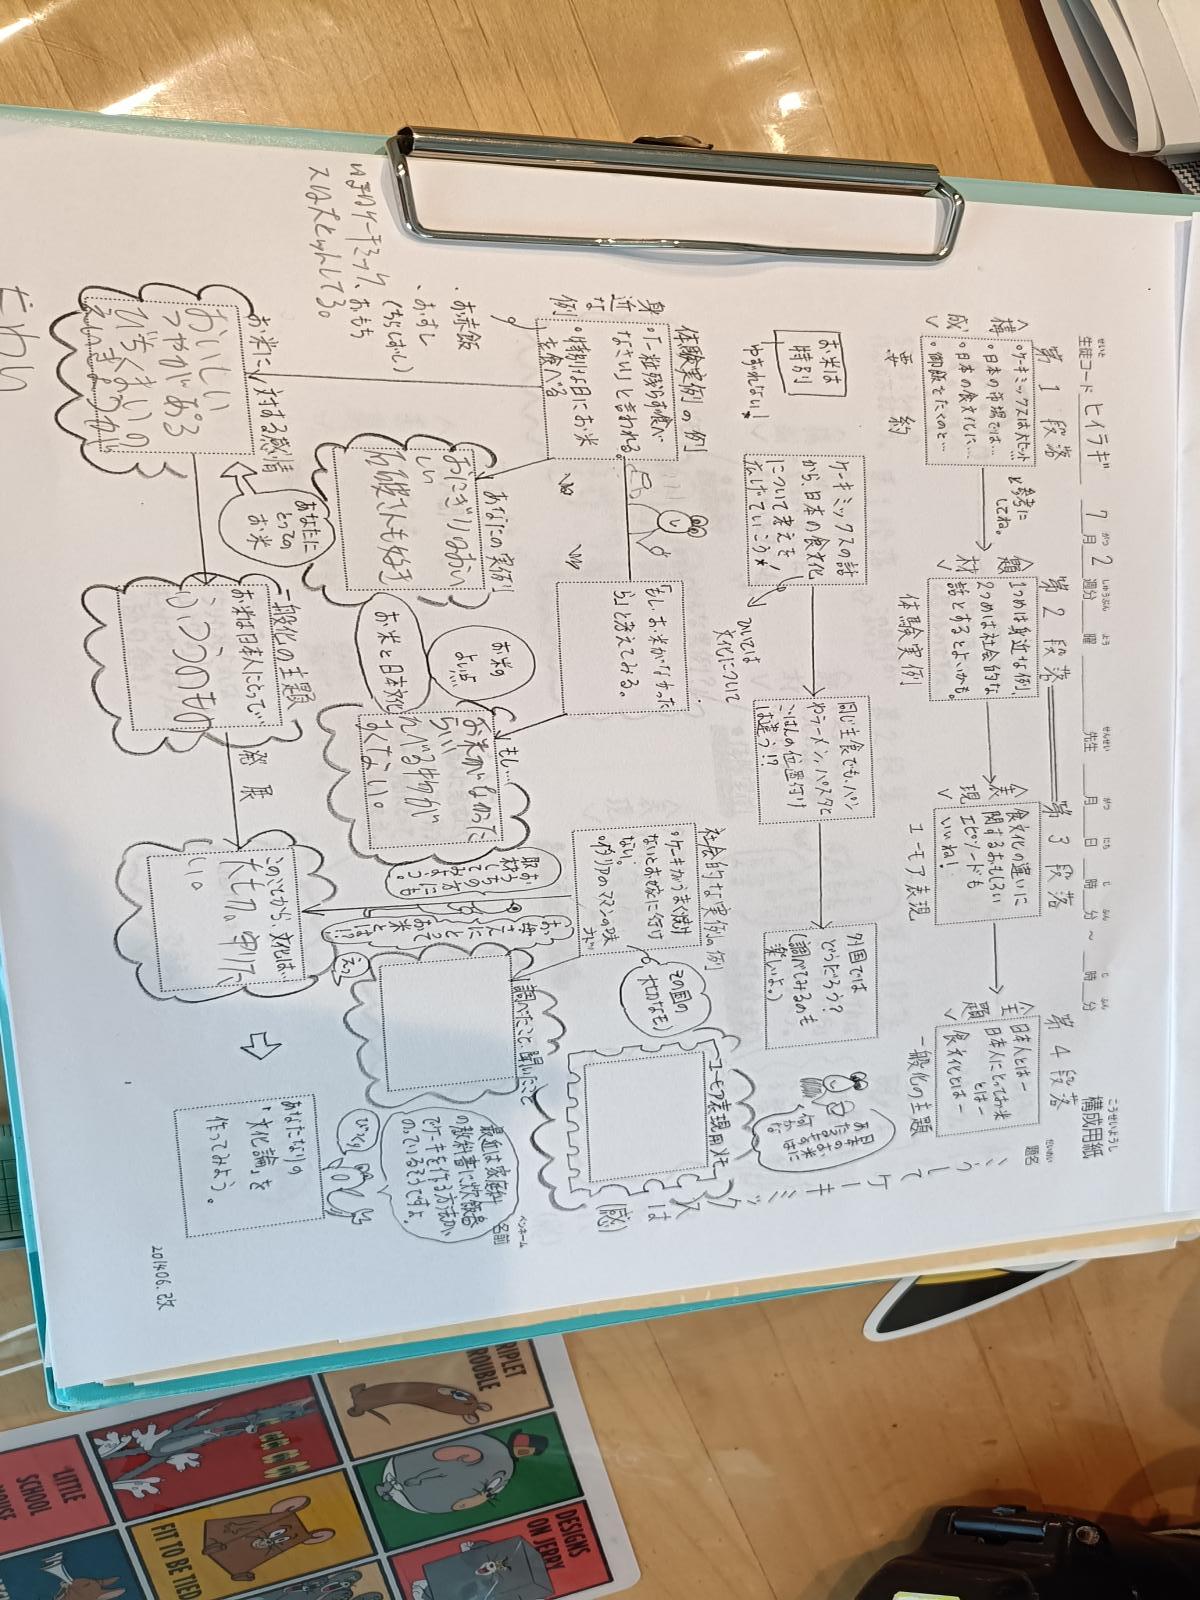 生徒コード ヒイラギ 7月2週分 曜 先生 月 日 時 分 ~ 時 分 構成用紙
せいと
がつ
しゅうぶん
よう
せんせい
がつ
にち
じ
ふん
じ
ふん
こうせいようし
だいめい
題名
どうして
ケーキミックスは
(感)
ペンネーム
名前
<構成>
第1段落
・ケーキミックスは大ヒット
・日本の市場では…
・日本の食文化に…
・御飯をたくのと…
要約
参考に
してね。
第2段落
<題材>
1つめは身近な例、
2つめは社会的な
話とするとよいかも。
体験実例
第3段落
<表現>
食文化の違いに
関するおもしろい
エピソードも
いいね!
ユーモア表現
第4段落
<主題>
日本人とは―
日本人にとってお米
とは―
食文化とは―
一般化の主題
お米は
特別
ゆずれない!
ケーキミックスの話
から、日本の食文化
について考えを
広げていこう
ひいては
文化について
同じ主食でも、パン
やラーメン、パスタと
ごはんの位置付け
は違う!?
外国では
どうだろう?
(調べてみるのも
楽しいよ。)
身近な例
体験実例の例
・「一粒残らず食べ
なさい」と言われる。
・特別な日にお米
を食べる
・お赤飯
・おすし
(ちらしずし)
おもち
「もし、お米がなかった
ら」と考えてみる。
社会的な実例の例
・ケーキがうまく焼け
ないとお嫁に行け
ない。
その国の
大切なモノ
ユーモア表現用メモ
あなたの実例
おにぎりはおい
しい
もし…
お米がなかった
らいい
たべる物が
すくない。
お米の
よい点
お米と日本文化
調べたこと、聞いたこと
えっ
最近は家庭科
の教科書に炊飯器
でケーキを作る方法が
のっているそうですよ。
びっくり
お米に対する感情
おいしい
つやがある
あなたに
とっての
お米
一般化の主題
お米は日本人にとって…
いつうのもの
発展
このことから、文化は…
大切。
あなたなりの
「文化論」を
作ってみよう。
201406.改
TRIPLET
TROUBLE
DESIGNS
ON JERRY
LITTLE
SCHOOL
MOUSE
FIT TO BE TIED